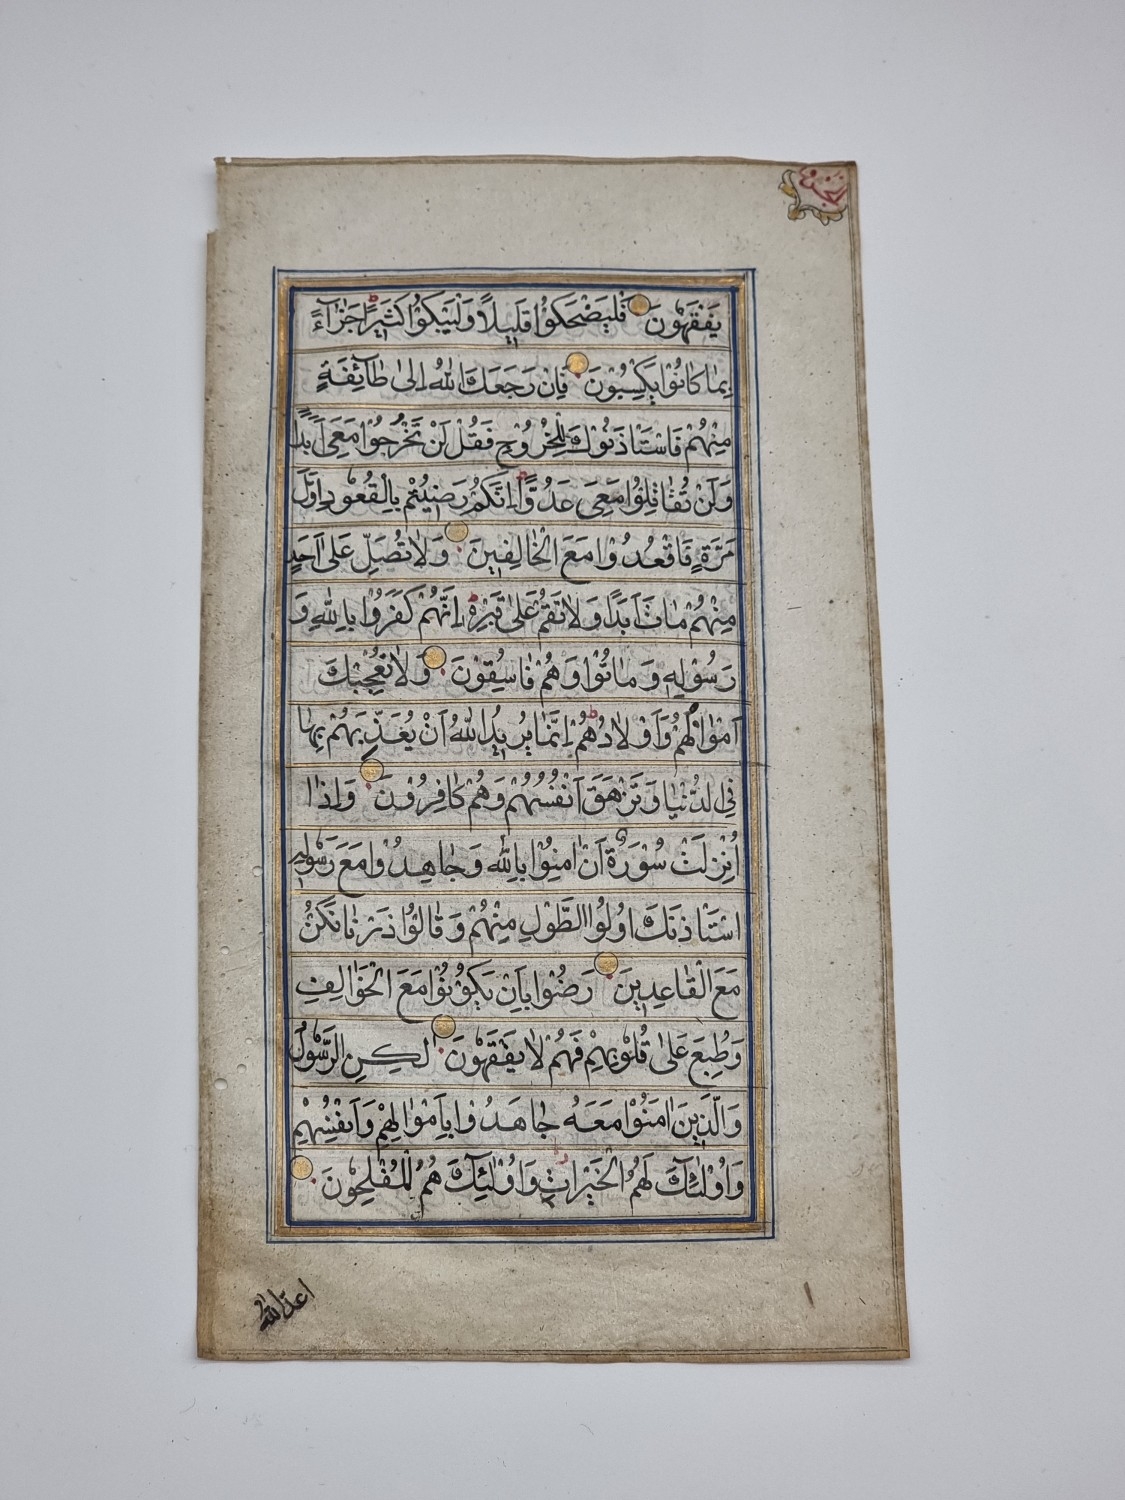 يَفْقَهُونَ فَلْيَضْحَكُوا قَلِيلًا وَلْيَبْكُوا كَثِيرًا جَزَاءً
بِمَا كَانُوا يَكْسِبُونَ فَإِنْ رَجَعَكَ اللهُ إِلَىٰ طَائِفَةٍ
مِنْهُمْ فَاسْتَأْذَنُوكَ لِلْخُرُوجِ فَقُلْ لَنْ تَخْرُجُوا مَعِيَ أَبَدًا
وَلَنْ تُقَاتِلُوا مَعِيَ عَدُوًّا إِنَّكُمْ رَضِيتُمْ بِالْقُعُودِ أَوَّلَ
مَرَّةٍ فَاقْعُدُوا مَعَ الْخَالِفِينَ وَلَا تُصَلِّ عَلَىٰ أَحَدٍ
مِنْهُمْ مَاتَ أَبَدًا وَلَا تَقُمْ عَلَىٰ قَبْرِهِ إِنَّهُمْ كَفَرُوا بِاللهِ وَ
رَسُولِهِ وَمَاتُوا وَهُمْ فَاسِقُونَ وَلَا تُعْجِبْكَ
أَمْوَالُهُمْ وَأَوْلَادُهُمْ إِنَّمَا يُرِيدُ اللهُ أَنْ يُعَذِّبَهُمْ بِهَا
فِي الدُّنْيَا وَتَزْهَقَ أَنْفُسُهُمْ وَهُمْ كَافِرُونَ وَإِذَا
أُنْزِلَتْ سُورَةٌ أَنْ اٰمِنُوا بِاللهِ وَجَاهِدُوا مَعَ رَسُولِهِ
اسْتَأْذَنَكَ أُولُوا الطَّوْلِ مِنْهُمْ وَقَالُوا ذَرْنَا نَكُنْ
مَعَ الْقَاعِدِينَ رَضُوا بِأَنْ يَكُونُوا مَعَ الْخَوَالِفِ
وَطُبِعَ عَلَىٰ قُلُوبِهِمْ فَهُمْ لَا يَفْقَهُونَ لٰكِنِ الرَّسُولُ
وَالَّذِينَ اٰمَنُوا مَعَهُ جَاهَدُوا بِأَمْوَالِهِمْ وَأَنْفُسِهِمْ
وَأُولٰئِكَ لَهُمُ الْخَيْرَاتُ وَأُولٰئِكَ هُمُ الْمُفْلِحُونَ
اعد الله